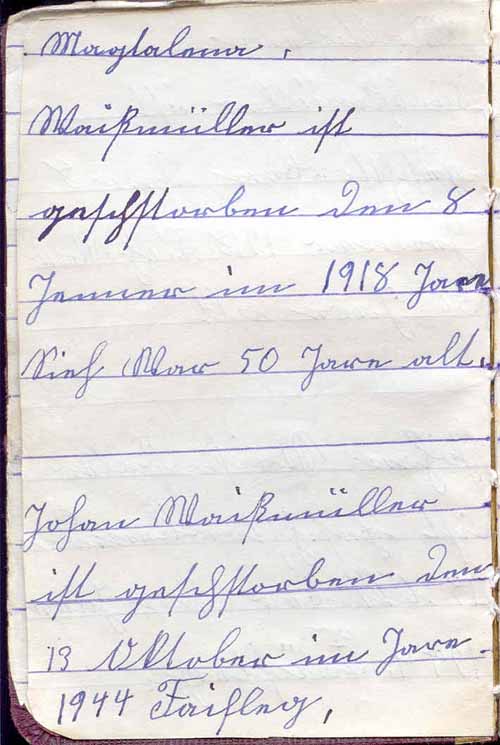 Magtalena.
Waißmüller ist
geschstorben den 8
Jenner im 1918 Jare
Sieh War 50 Jare alt.
Johan Waißmüller
ist geschstorben den
13 Oktober im Jare
1944